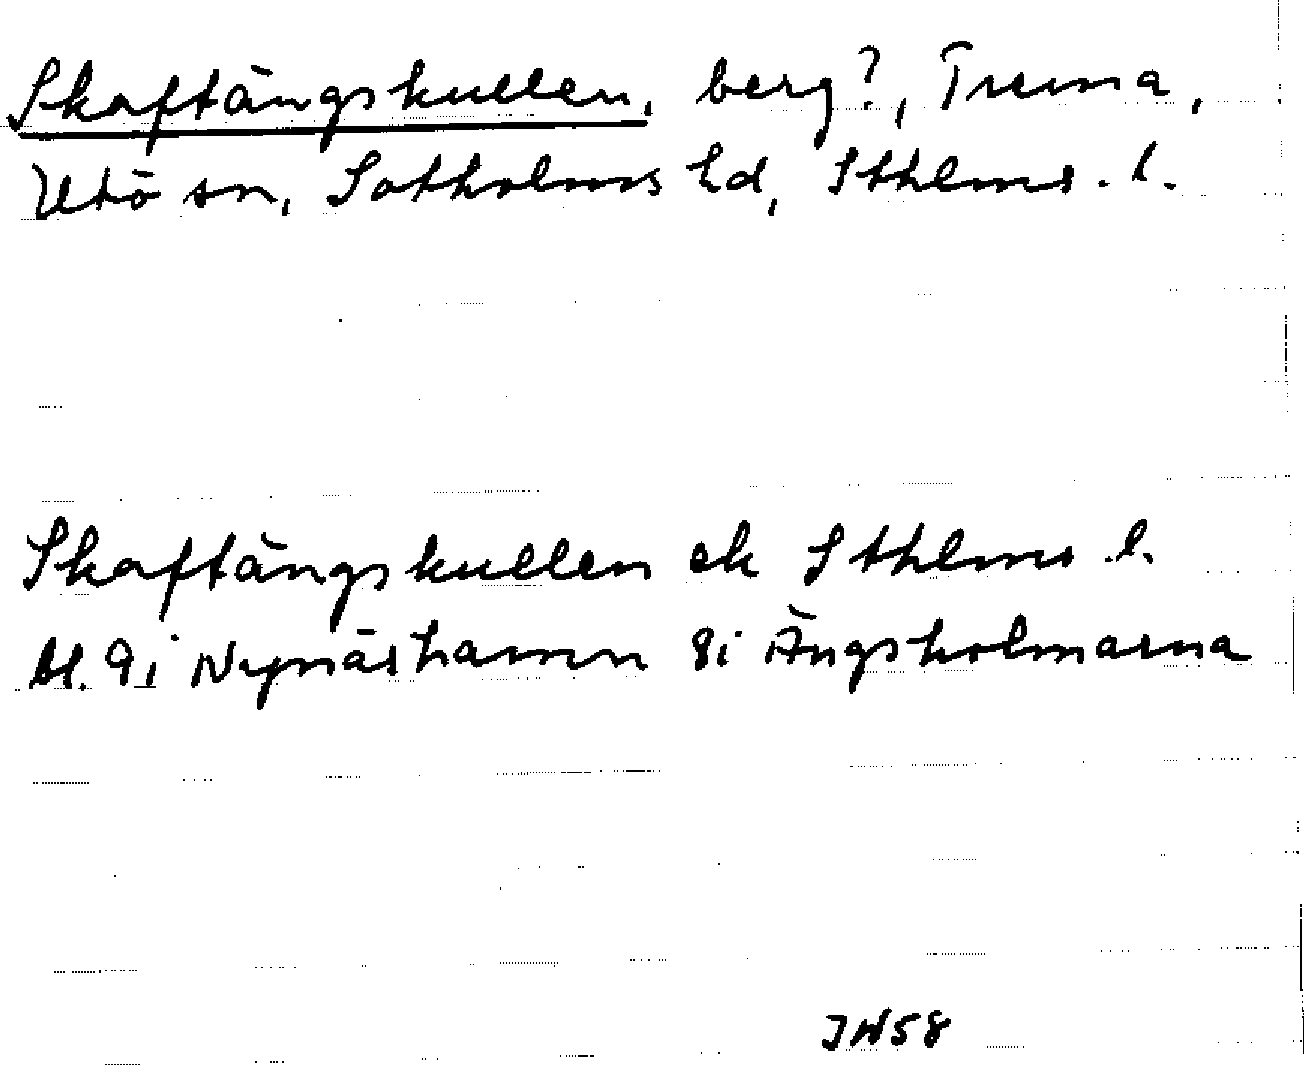 Skaftängskullen, berg?, Truma,
Utö sn, Sotholms hd, Sthlms. l.
Skaftängskullen ek Sthlms l.
bl. 9i Nynäshamn 8i Ängsholmarna
JN58